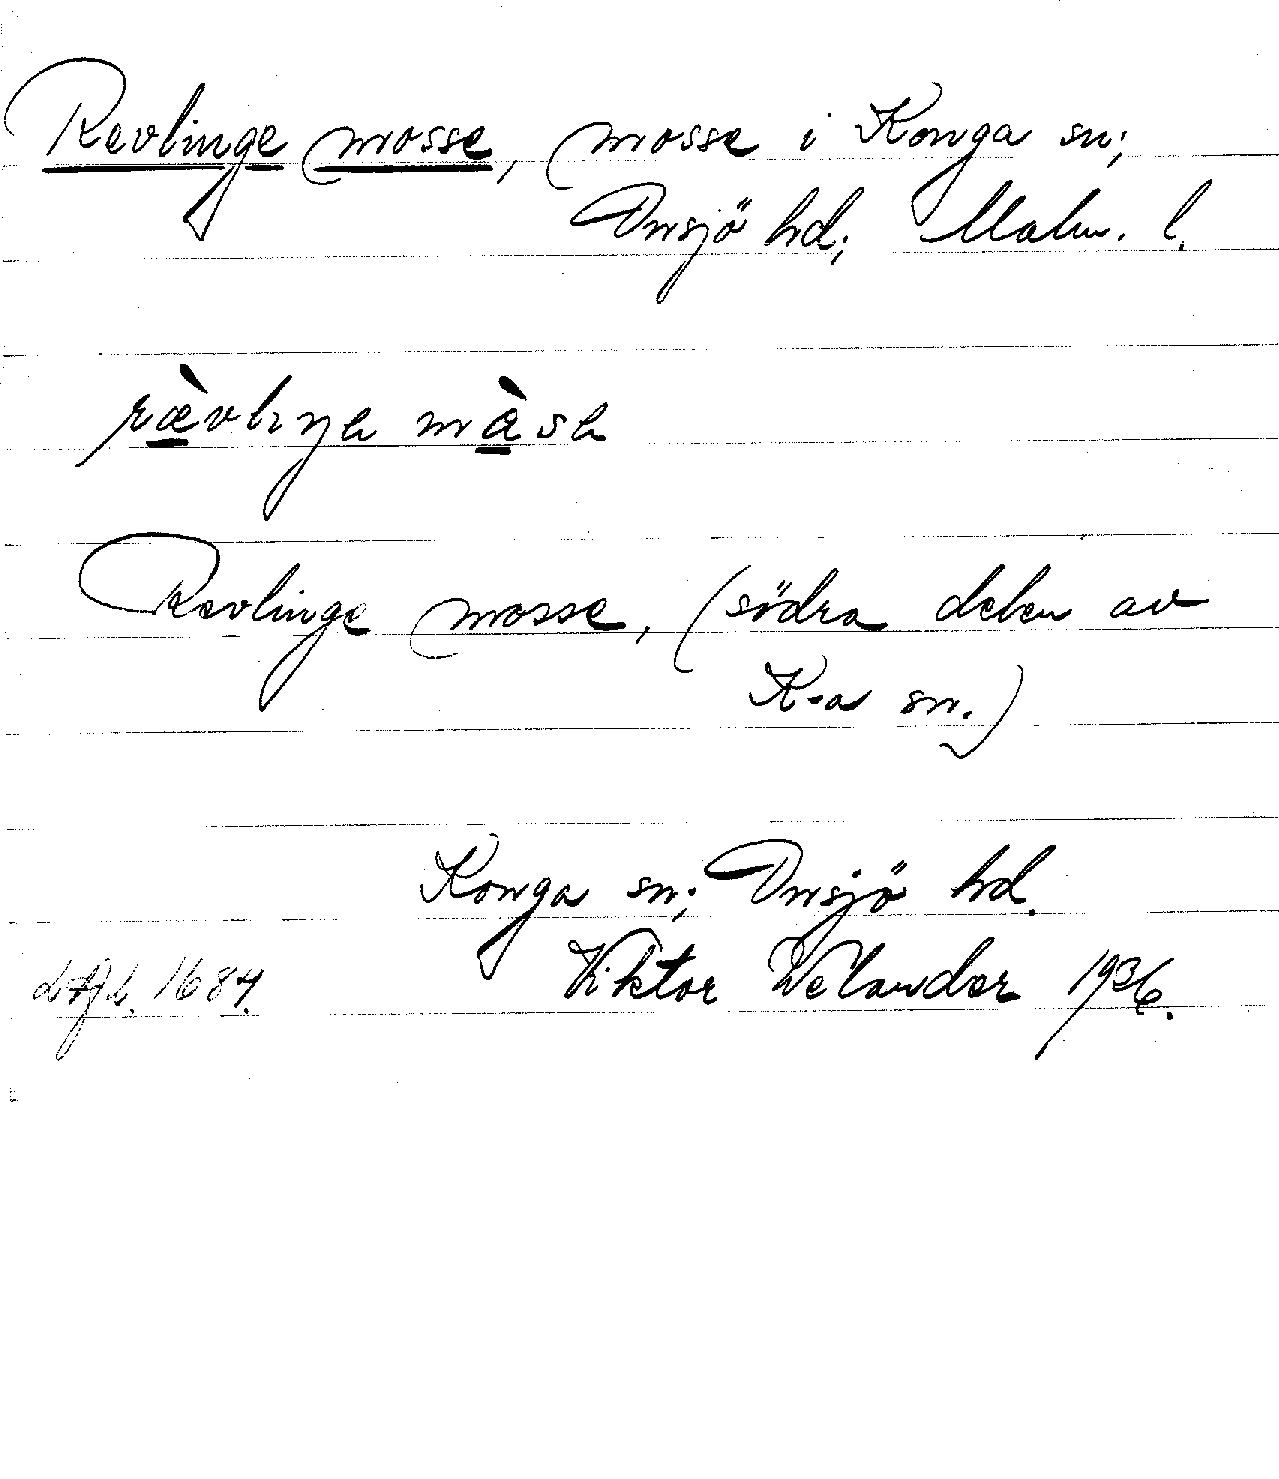 Revlinge mosse, mosse i Konga sn;
Onsjö hd; Malm. l.
rævliŋə måsə
Revlinge mosse, (södra delen av
K-a sn.)
Konga sn; Onsjö hd.
Viktor Welander 1936.
1684.